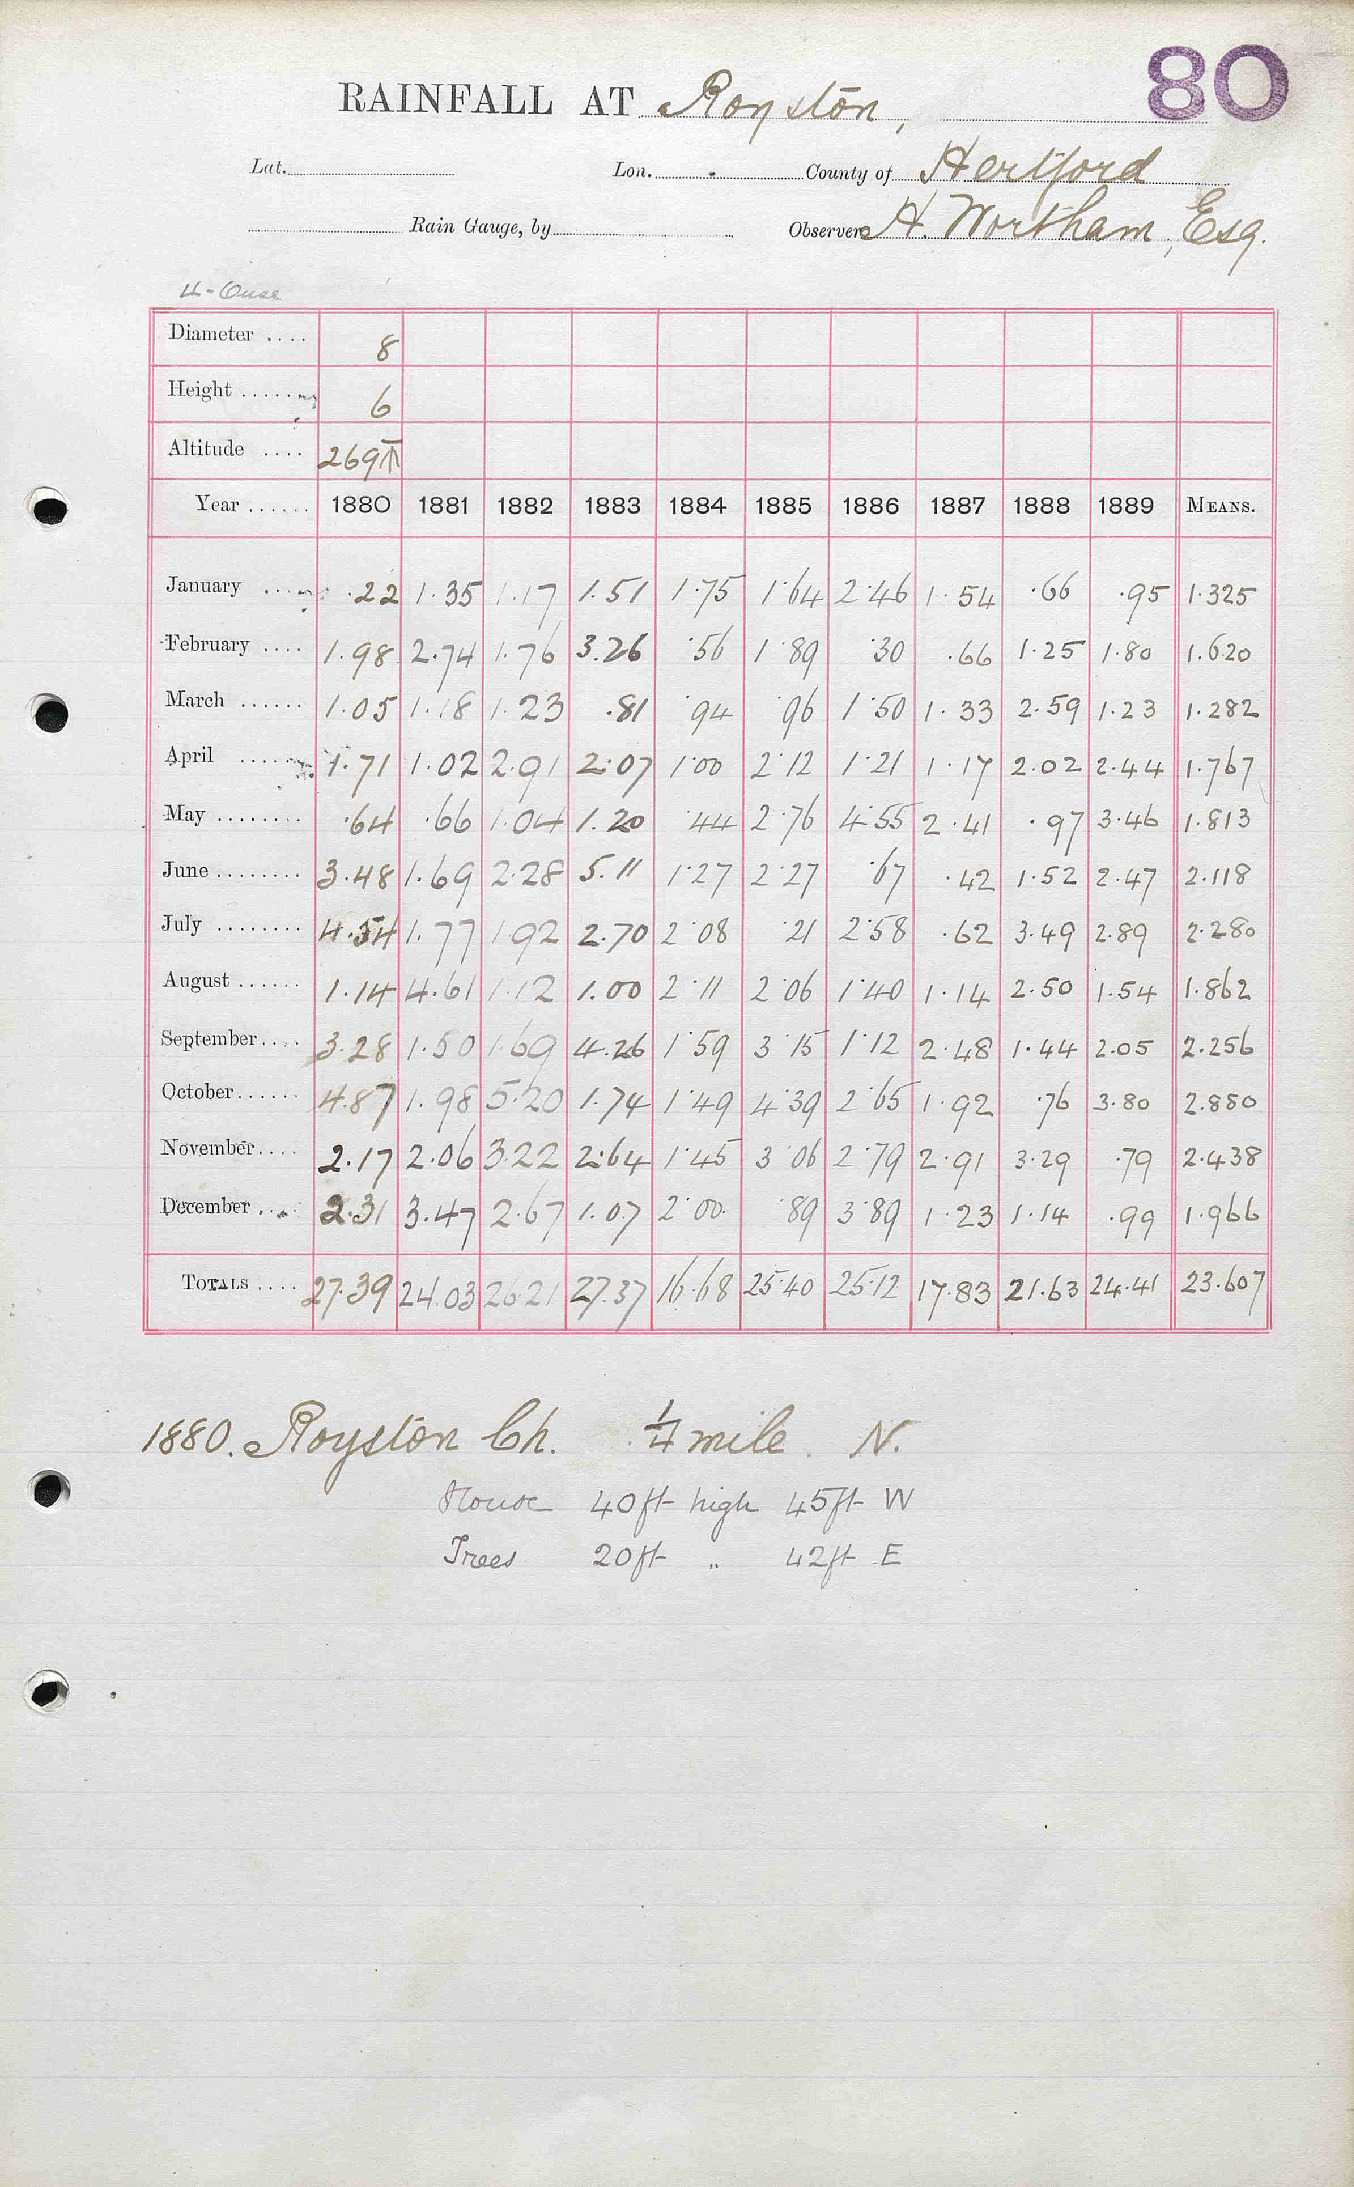 80
RAINFALL AT Royston,
Lat. Lon. County of Hertford
Rain Gauge, by Observer H. Wortham, Esq.
Diameter .... 8
Height ...... 6
Altitude .... 269
Year ...... 1880 1881 1882 1883 1884 1885 1886 1887 1888 1889 MEANS.
January .... .22 1.35 1.17 1.51 1.75 1.64 2.46 1.54 .66 .95 1.325
February .... 1.98 2.74 1.76 3.26 .56 1.89 .30 .66 1.25 1.80 1.620
March ...... 1.05 1.18 1.23 .81 .94 .96 1.50 1.33 2.59 1.23 1.282
April ...... 1.71 1.02 2.91 2.07 1.00 2.12 1.21 1.17 2.02 2.44 1.767
May ........ .64 .66 1.04 1.20 .44 2.76 4.55 2.41 .97 3.46 1.813
June ........ 3.48 1.69 2.28 5.11 1.27 2.27 .67 .42 1.52 2.47 2.118
July ........ 4.54 1.77 1.92 2.70 2.08 .21 2.58 .62 3.49 2.89 2.280
August ...... 1.14 4.61 1.12 1.00 2.11 2.06 1.40 1.14 2.50 1.54 1.862
September.... 3.28 1.50 1.69 4.26 1.59 3.15 1.12 2.48 1.44 2.05 2.256
October...... 4.87 1.98 5.20 1.74 1.49 4.39 2.65 1.92 .76 3.80 2.880
November.... 2.17 2.06 3.22 2.64 1.45 3.06 2.79 2.91 3.29 .79 2.438
December .... 2.31 3.47 2.67 1.07 2.00 .89 3.89 1.23 1.14 .99 1.966
TOTALS .... 27.39 24.03 26.21 27.37 16.68 25.40 25.12 17.83 21.63 24.41 23.607
1880. Royston Ch. 1/4 mile N.
House 40ft high 45ft W
Trees 20ft " 42ft E